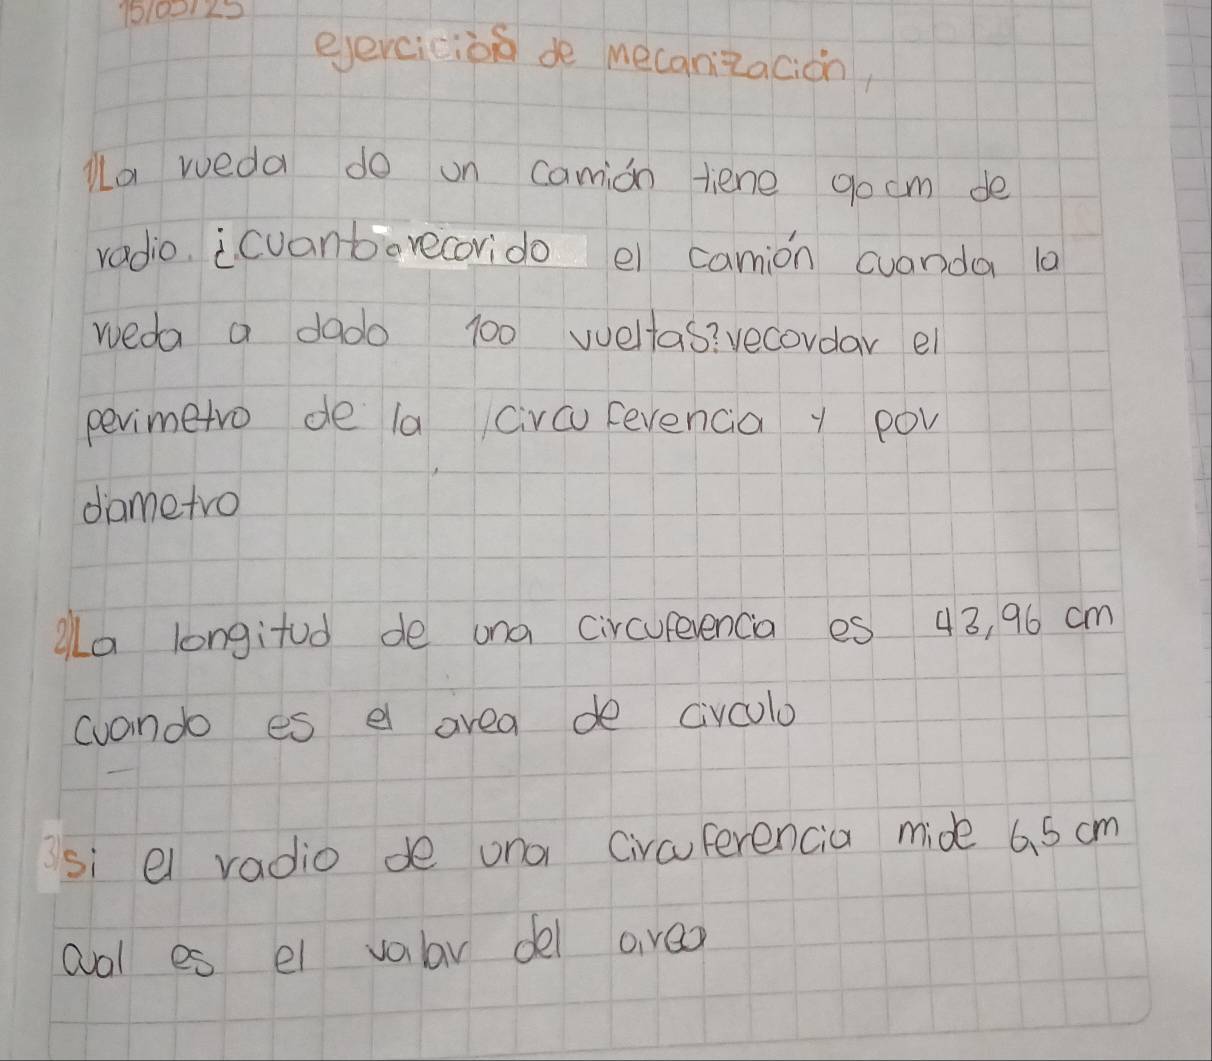 15/05/25
ejercicios de mecanización,
1) La rueda do un camión tiene 90 cm de
radio. ¿cuanto a recorido el camión cuanda la
rueda a dado 100 vueltas? recordar el
perimetro de la circuferencia y por
diametro
2) La longitud de una circuferencia es 43,96 cm
cuando es el area de circulo
3) si el radio de una circuferencia mide 6,5 cm
cual es el valor del area